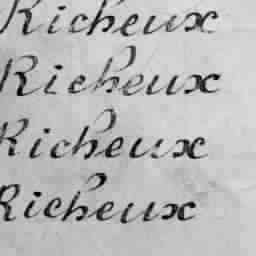 Richeux
Richeux
Richeux
Richeux